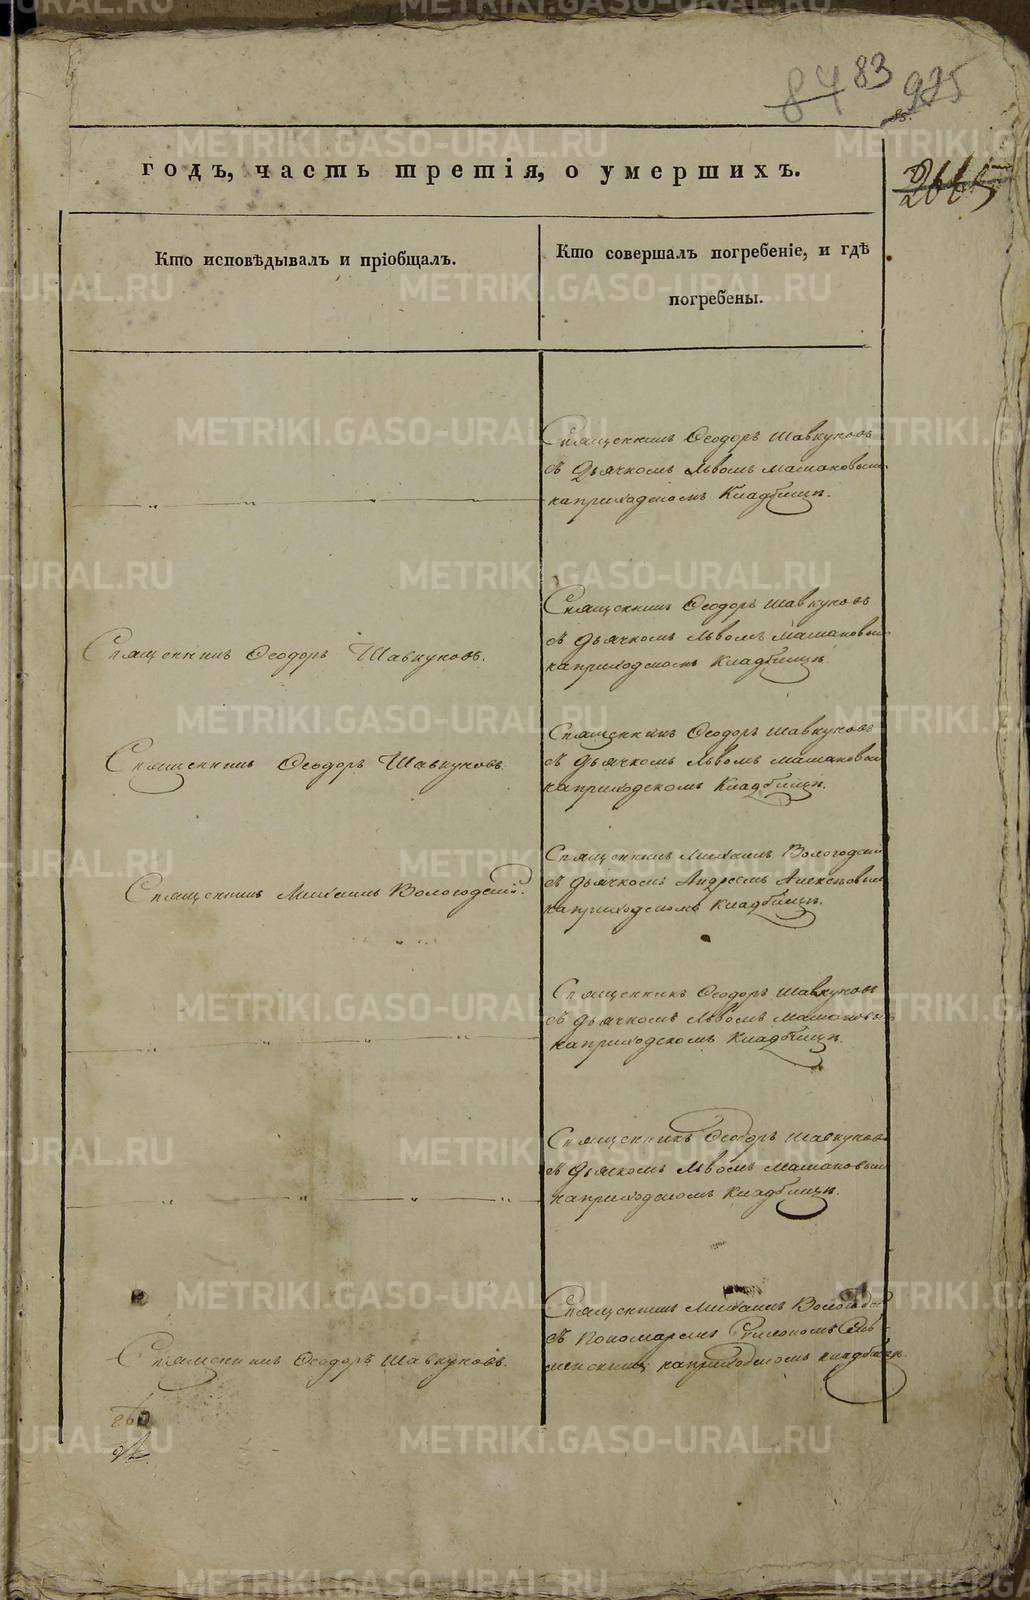 84 83 975
годъ, часть третія, о умершихъ.
Кто исповѣдывалъ и пріобщалъ.
Кто совершалъ погребеніе, и гдѣ
погребены.
Священникъ Ѳеодоръ Шавкуновъ
съ дьячкомъ Львомъ
на приходскомъ кладбищѣ.
Священникъ Ѳеодоръ Шавкуновъ.
Священникъ Ѳеодоръ Шавкуновъ
съ дьячкомъ Львомъ
на приходскомъ кладбищѣ.
Священникъ Ѳеодоръ Шавкуновъ.
Священникъ Ѳеодоръ Шавкуновъ
съ дьячкомъ Львомъ
на приходскомъ кладбищѣ.
Священникъ Михаилъ Вологодскій.
Священникъ Михаилъ Вологодскій
съ дьячкомъ Андреемъ
на приходскомъ кладбищѣ.
Священникъ Ѳеодоръ Шавкуновъ
съ дьячкомъ Львомъ
на приходскомъ кладбищѣ.
Священникъ Ѳеодоръ Шавкуновъ
съ дьячкомъ Львомъ
на приходскомъ кладбищѣ.
Священникъ Ѳеодоръ Шавкуновъ.
Священникъ Михаилъ
съ пономаремъ
на приходскомъ кладбищѣ.
METRIKI.GASO-URAL.RU